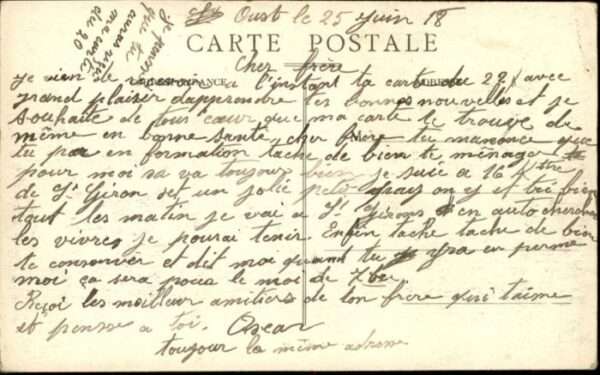 Oust le 25 Juin 18
je pense
que tu
auras reçu
ma carte
du 20
CARTE POSTALE
Cher frère
je vien de recevoir a l'instant ta carte du 22 avec
grand plaisir d'apprendre tes bonnes nouvelles et je
souhaite de tous cœur que ma carte te trouve de
même en bonne santé, cher frère tu m'anonce que
tu par en formation tache de bien te ménager
pour moi sa va toujour bien je suie a 16 K tre
de St Giron set un jolie petit pays on y et bié bien
tout les matin je vai a St Girons en auto chercher
les vivres, je pourai tenir Enfin tache tache de bien
te conserver et dit moi quand tu ira en perme
moi ça sera pour le moi de 7bre
Reçoi les meilleur amitiers de ton frère qui t'aime
et pense a toi. Oscar
toujour la même adresse